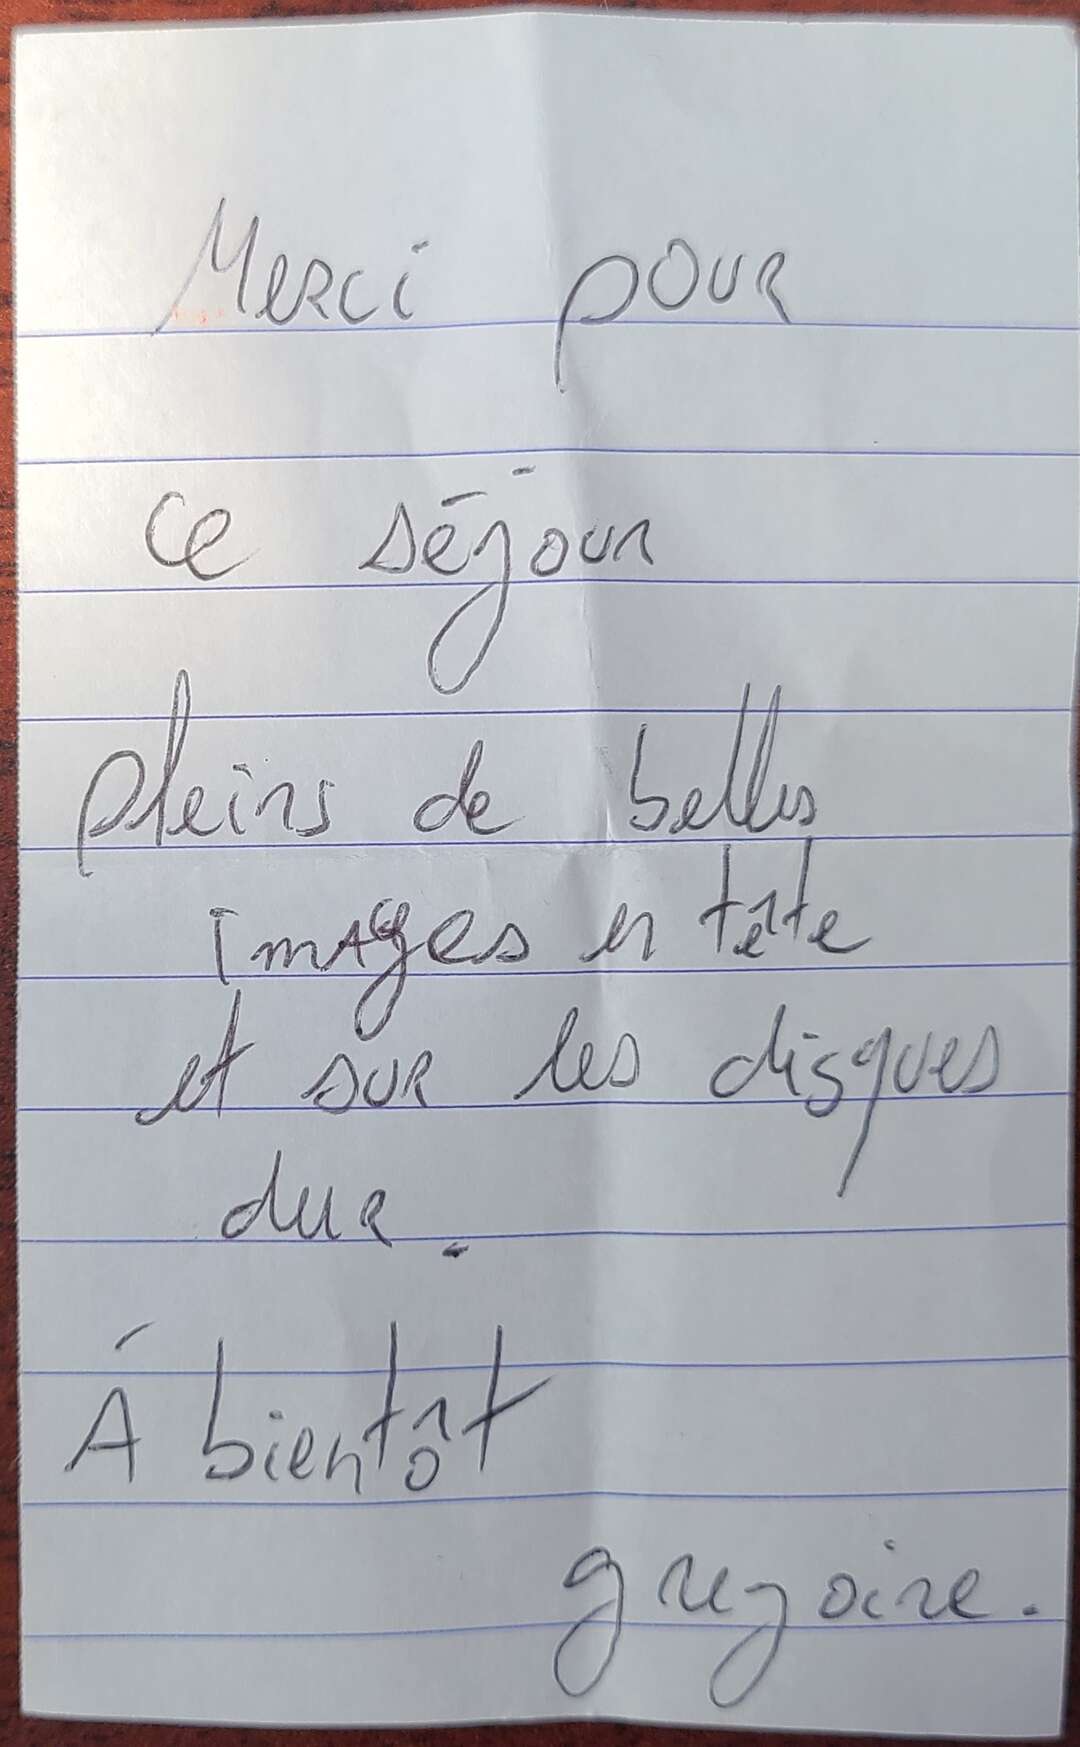 Merci pour
ce séjour
pleins de belles
images en tête
et sur les disques
dur.
À bientôt
gregoire.